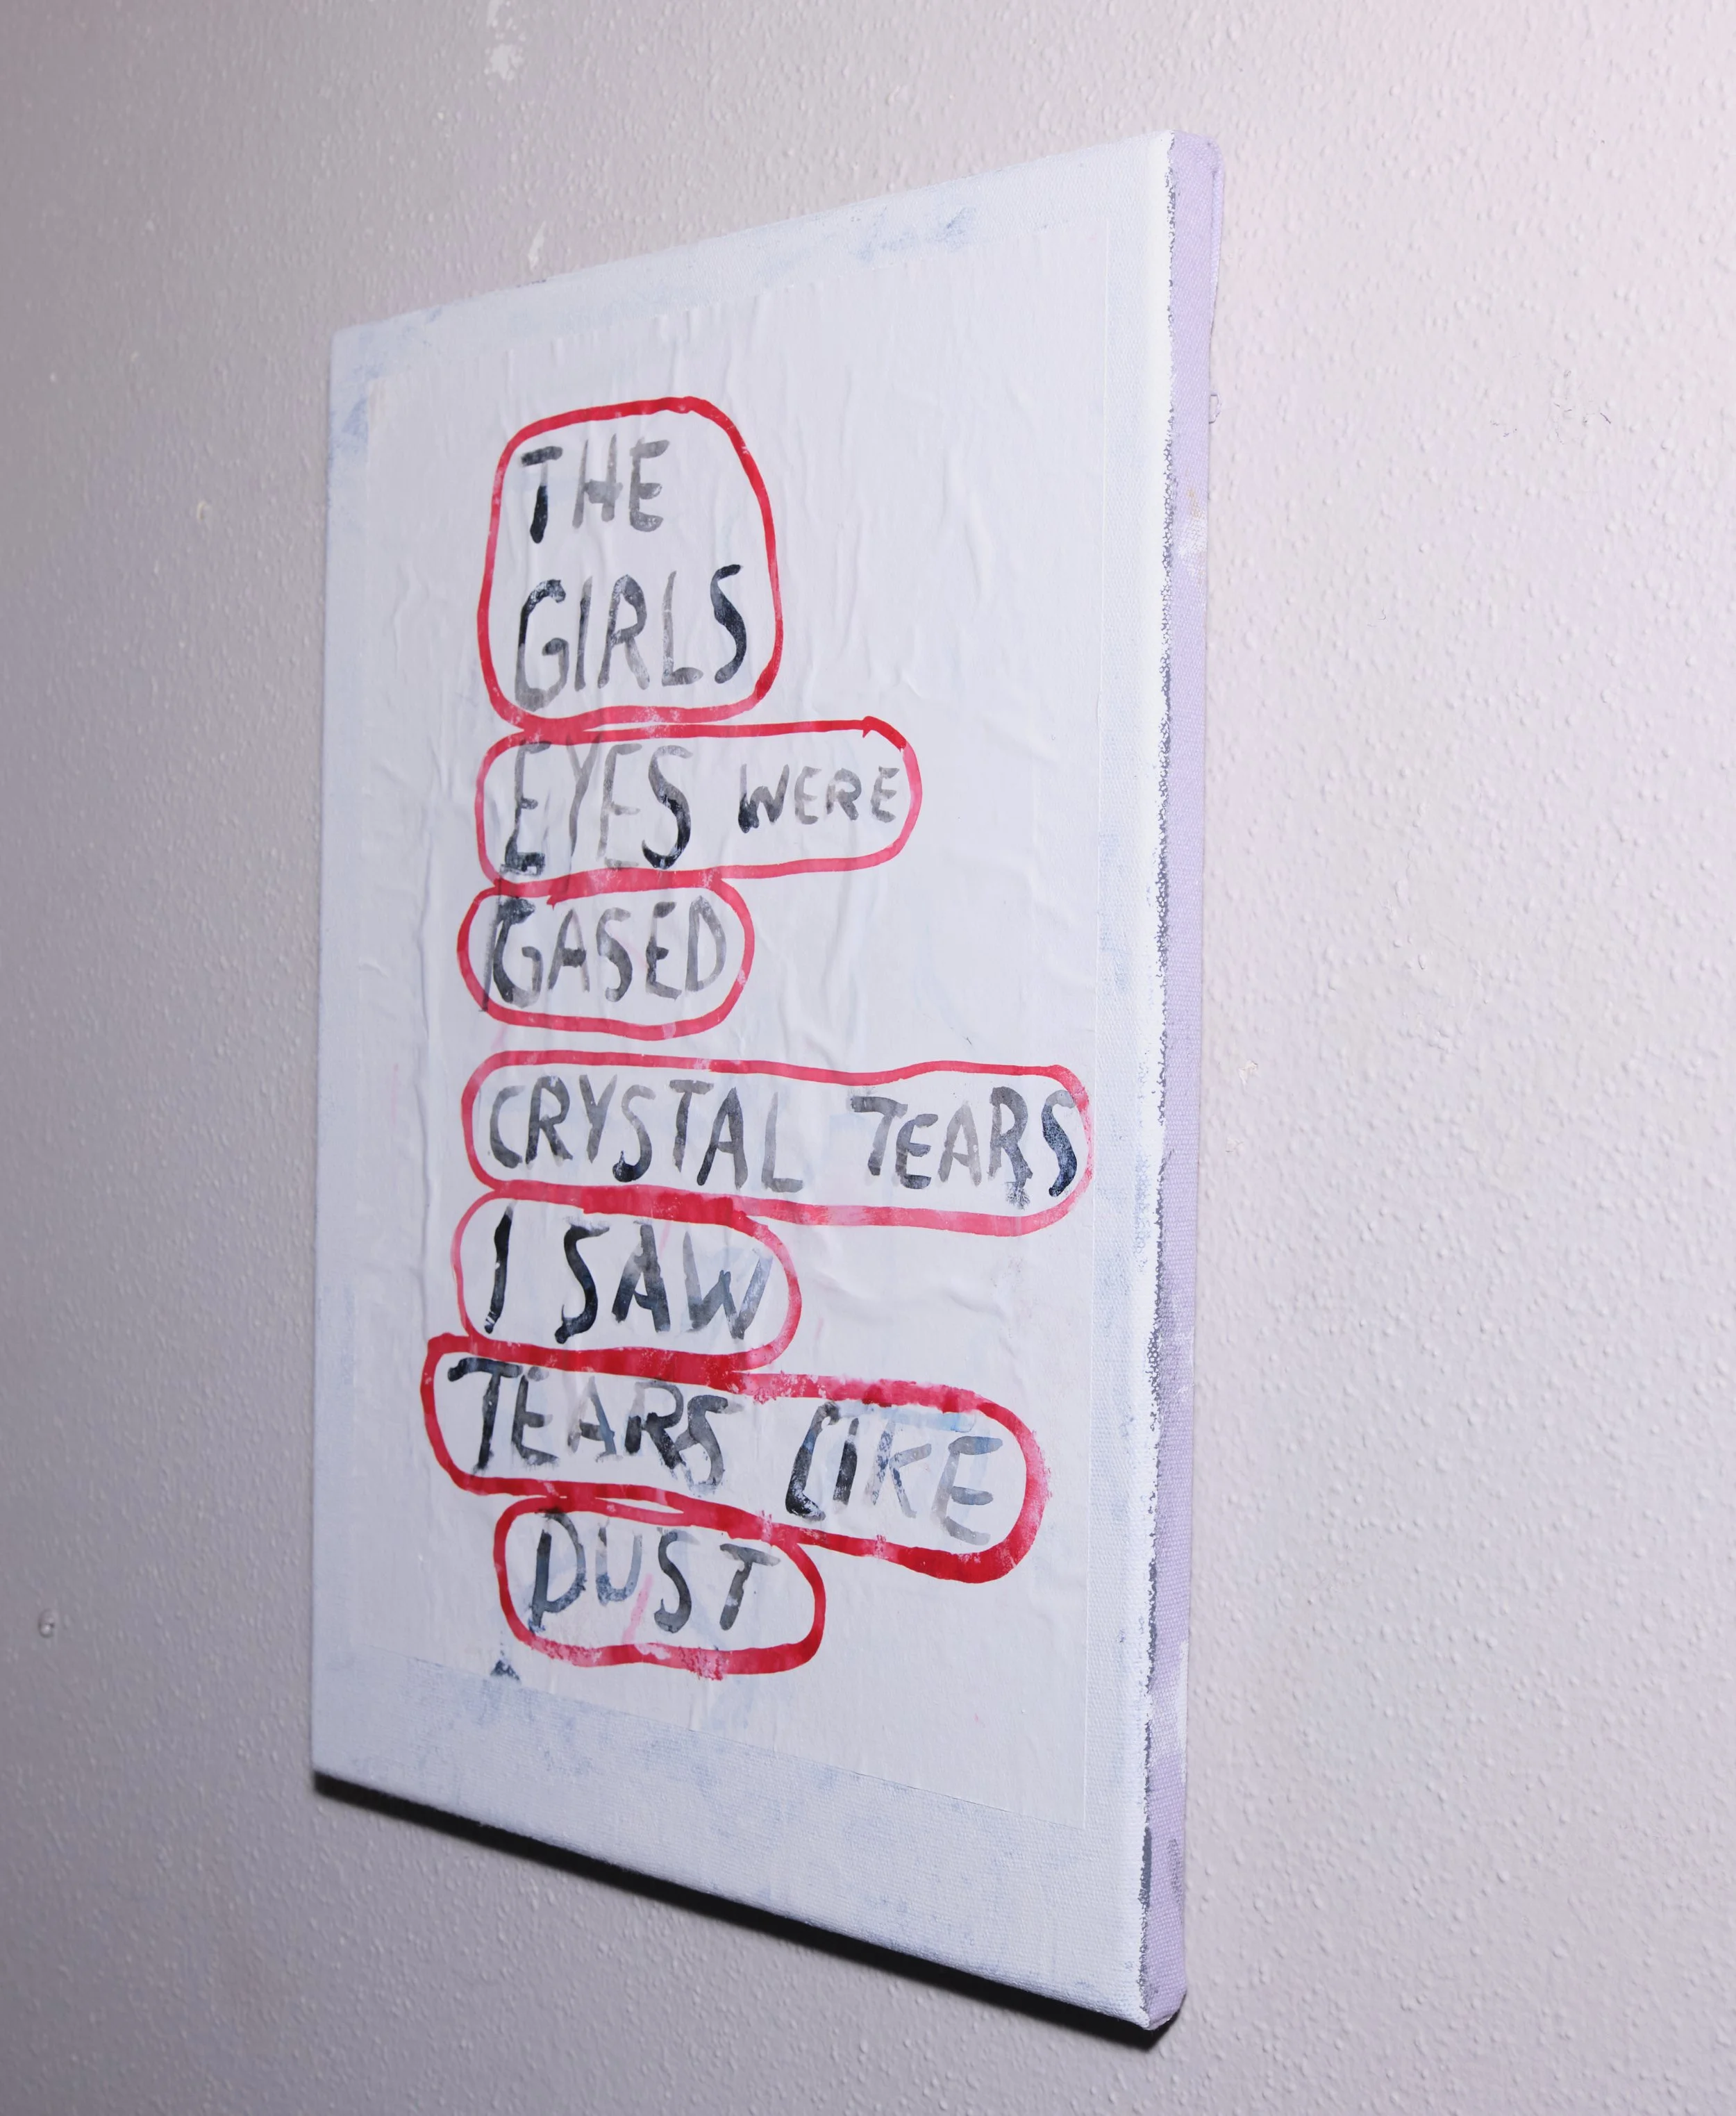 THE
GIRLS
EYES WERE
GASED
CRYSTAL TEARS
I SAW
TEARS LIKE
DUST